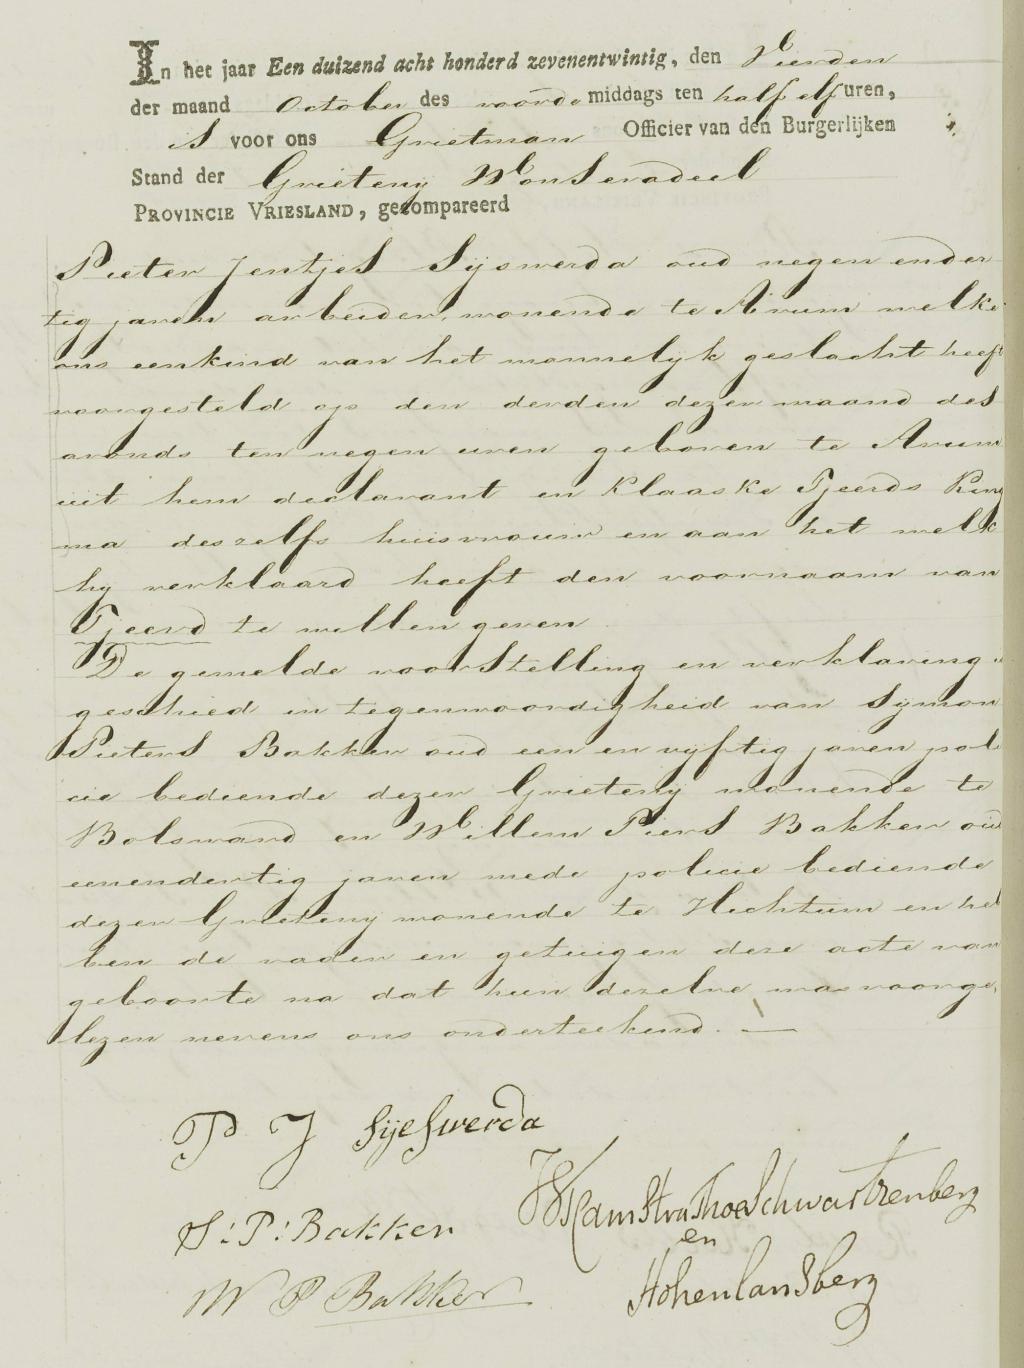 In het jaar Een duizend acht honderd zevenentwintig, den Vierden
der maand October des voorde middags ten half elf uren,
is voor ons Grietman Officier van den Burgerlijken
Stand der Grieteny Wonseradeel
PROVINCIE VRIESLAND, gecompareerd
Pieter Jentjes Sijswerda oud negen ender
tig jaren arbeider, wonende te Arum welke
ons een kind van het mannelyk geslacht heeft
voorgesteld op den derden dezer maand des
avonds ten negen uren geboren te Arum
uit hem declarant en Klaaske Tjeerds King
ma deszelfs huisvrouw en aan het welk
hy verklaard heeft den voornaam van
Tjeerd te willen geven
De gemelde voorstelling en verklaring
geschied in tegenwoordigheid van Sijmon
Pieters Bakker oud een en vyftig jaren poli
cie bediende dezer Grieteny wonende te
Bolsward en Willem Piers Bakker oud
eenendertig jaren mede policie bediende
dezer Grieteny wonende te Hichtum en heb
ben de vader en getuigen deze acte van
geboorte na dat hun dezelve was voorge,
lezen nevens ons onderteekend. —
P J Sijeswerda
S: P: Bakker
W P Bakker
Schwartzenberg
en
Hohenlansberg